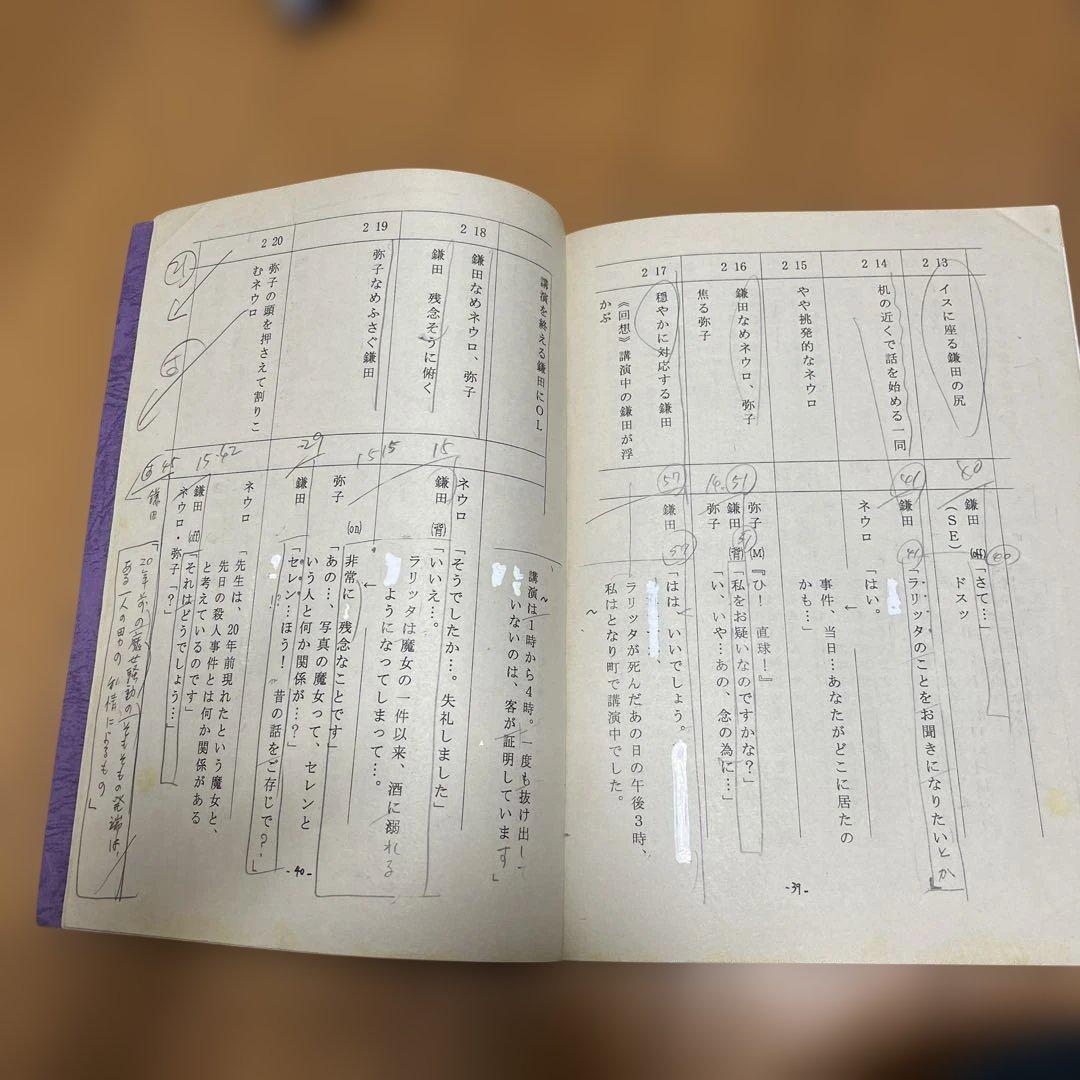 213
イスに座る鎌田の尻
40
鎌田
(off)
40
「さて…」
(SE)
ドスッ
214
机の近くで話を始める一同
41
鎌田
41
「ラリッタのことをお聞きになりたいとか」
ネウロ
「はい。
←
事件、当日…あなたがどこに居たの
かも…」
215
やや挑発的なネウロ
216
鎌田なめネウロ、弥子
焦る弥子
14.51
弥子
(M)
『ひ! 直球!』
鎌田
(背)
51
「私をお疑いなのですかな?」
弥子
「い、いや…あの、念の為に…」
217
穏やかに対応する鎌田
《回想》講演中の鎌田が浮
かぶ
57
鎌田
57
「はは、いいでしょう。
ラリッタが死んだあの日の午後3時、
私はとなり町で講演中でした。
~
-39-
講演を終える鎌田にOL
講演は1時から4時。一度も抜け出し
~
いないのは、客が証明しています」
218
鎌田なめネウロ、弥子
鎌田 残念そうに俯く
ネウロ
「そうでしたか…。失礼しました」
15
鎌田
(背)
「いいえ…。
ラリッタは魔女の一件以来、酒に溺れる
ようになってしまって…。
←
非常に残念なことです」
219
弥子なめふさぐ鎌田
15
15
弥子
(on)
「あの…、写真の魔女って、セレンと
いう人と何か関係が…?」
29
鎌田
「セレン…ほう! 昔の話をご存じで?」
220
弥子の頭を押さえて割りこ
むネウロ
ネウロ
「先生は、20年前現れたという魔女と、
先日の殺人事件とは何か関係がある
と考えているのです」
15.42
鎌田
「それはどうでしょう…」
ネウロ・弥子「?」
45
鎌田
「20年前の魔女騒動のそもそもの発端は、
ある一人の男の
によるもの」
21
-40-